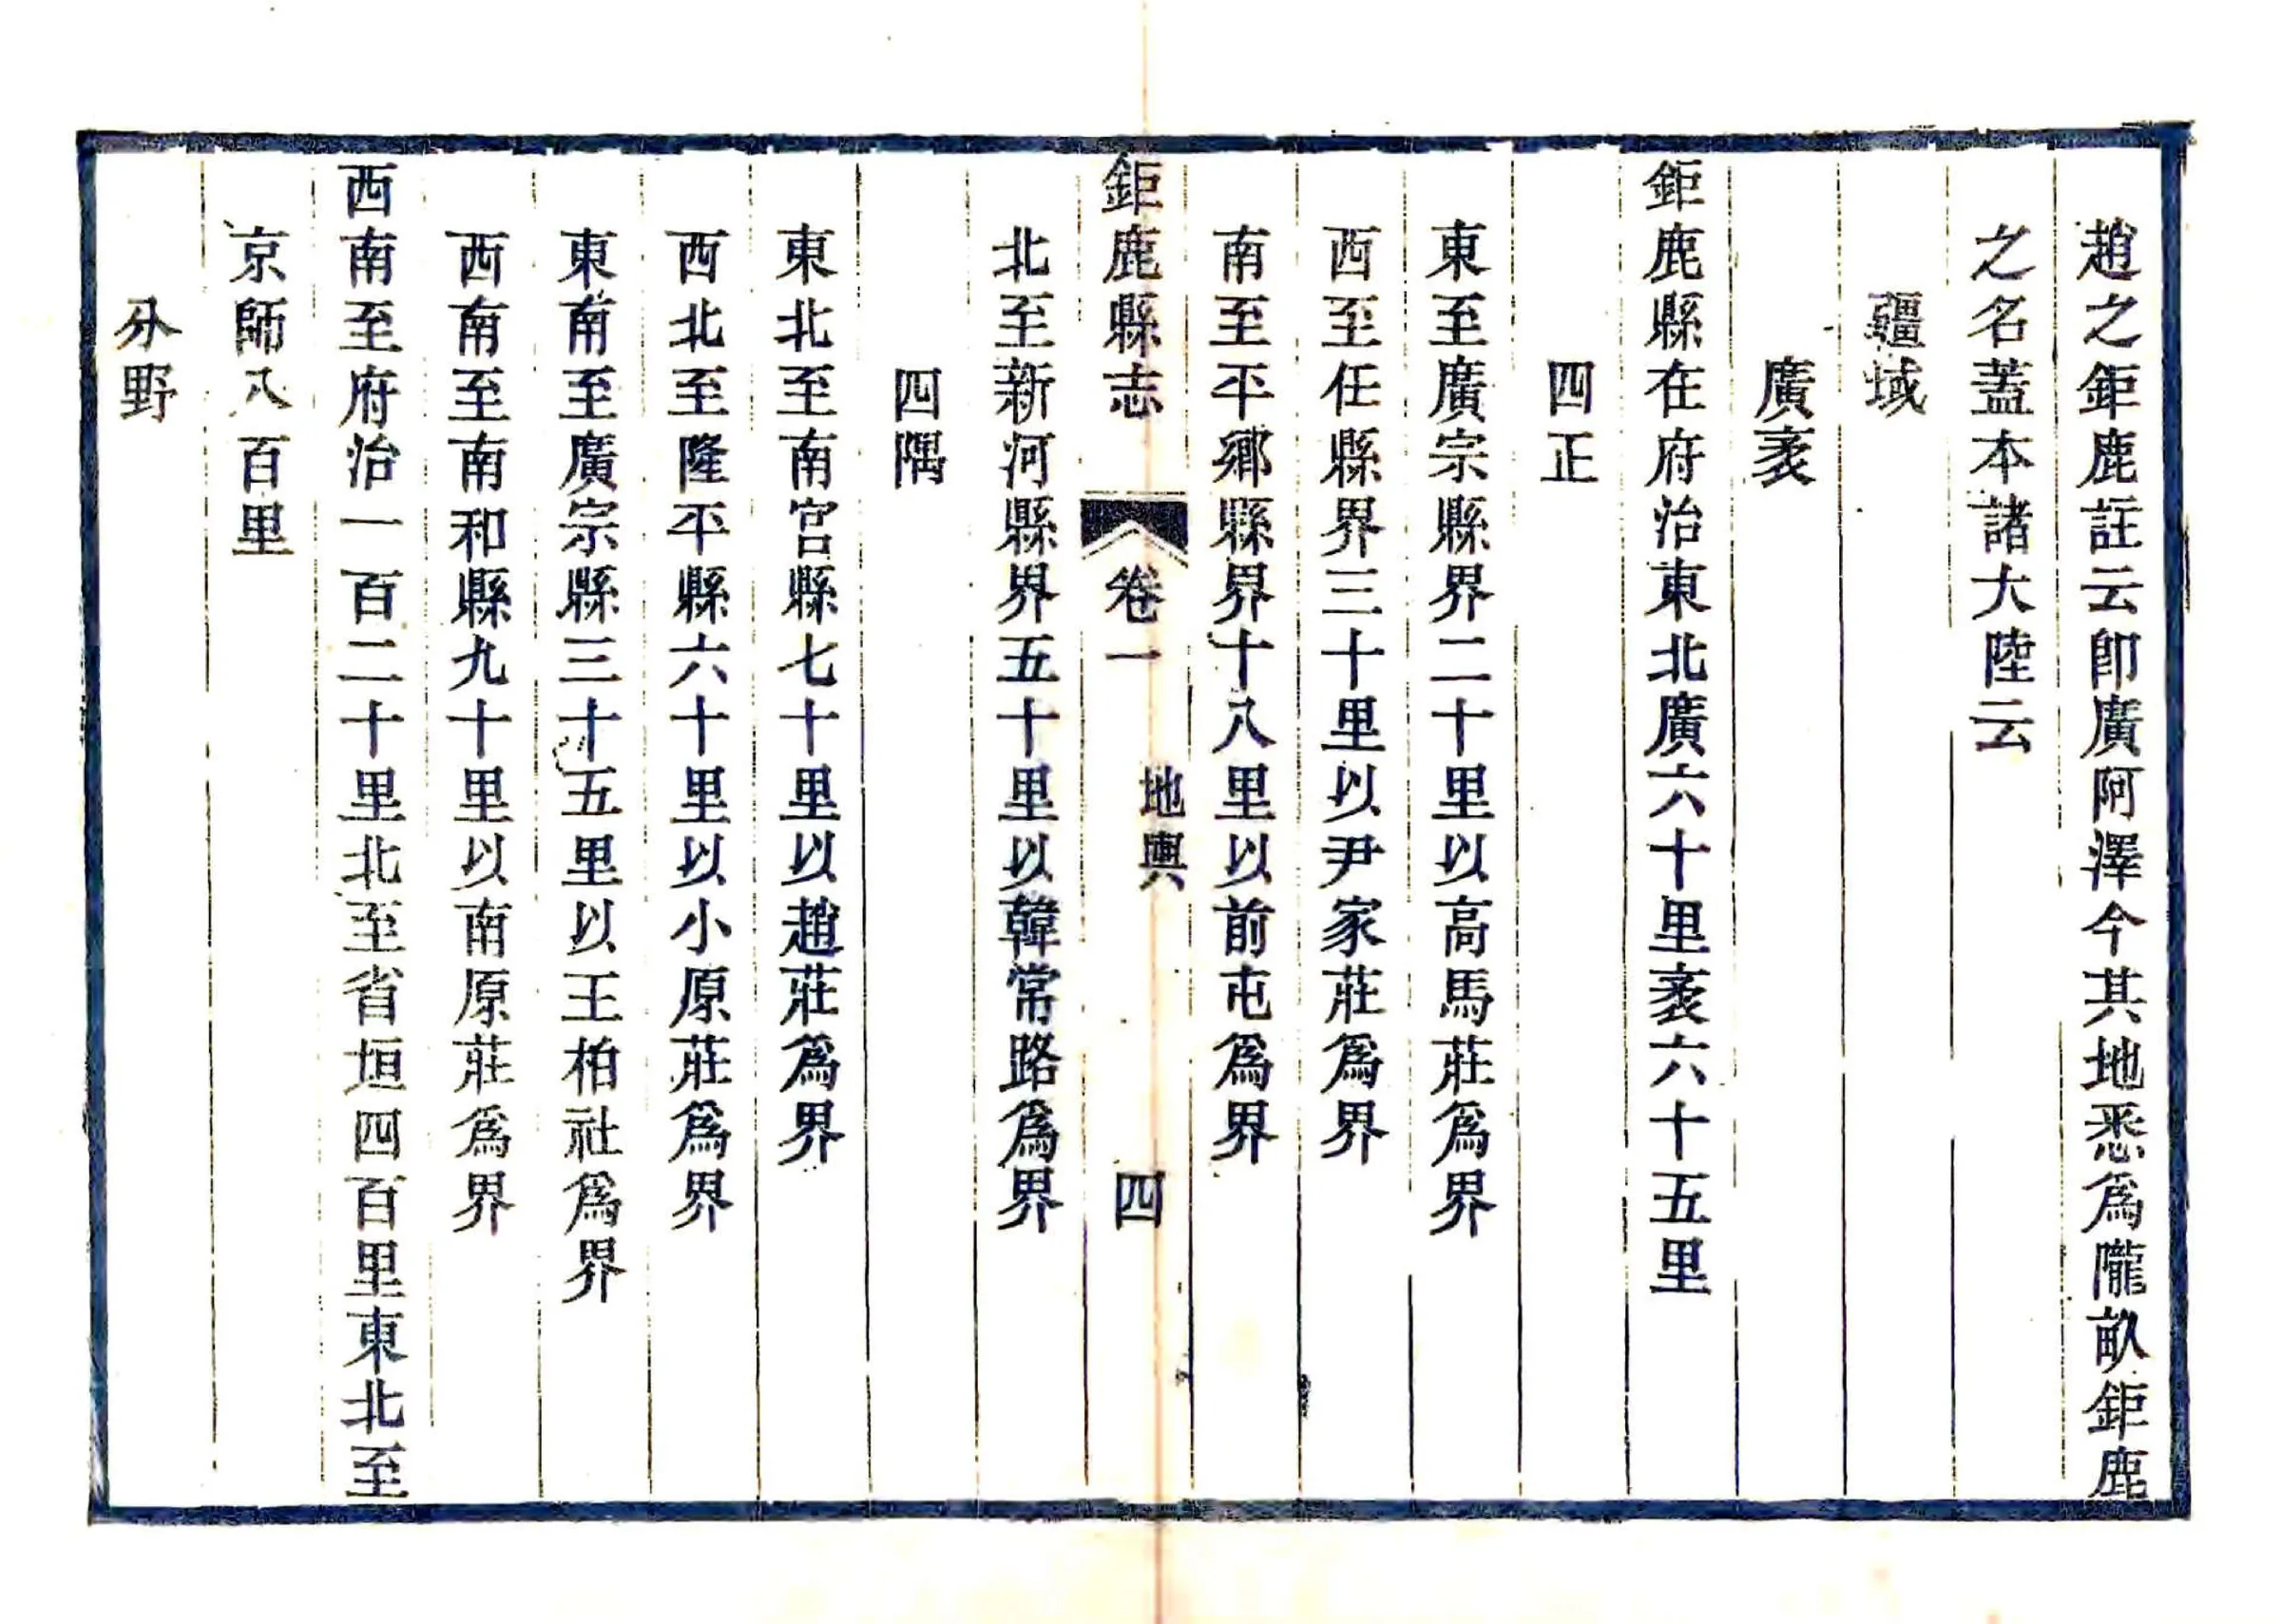 趙之鉅鹿註云卽廣阿澤今其地悉爲隴畝鉅鹿
之名蓋本諸大陸云
疆域
廣袤
鉅鹿縣在府治東北廣六十里袤六十五里
四正
東至廣宗縣界二十里以高馬莊爲界
西至任縣界三十里以尹家莊爲界
南至平鄉縣界十八里以前屯爲界
鉅鹿縣志 卷一 地輿 四
北至新河縣界五十里以韓常路爲界
四隅
東北至南宮縣七十里以趙莊爲界
西北至隆平縣六十里以小原莊爲界
東南至廣宗縣三十五里以王柏社爲界
西南至南和縣九十里以南原莊爲界
西南至府治一百二十里北至省垣四百里東北至
京師八百里
分野